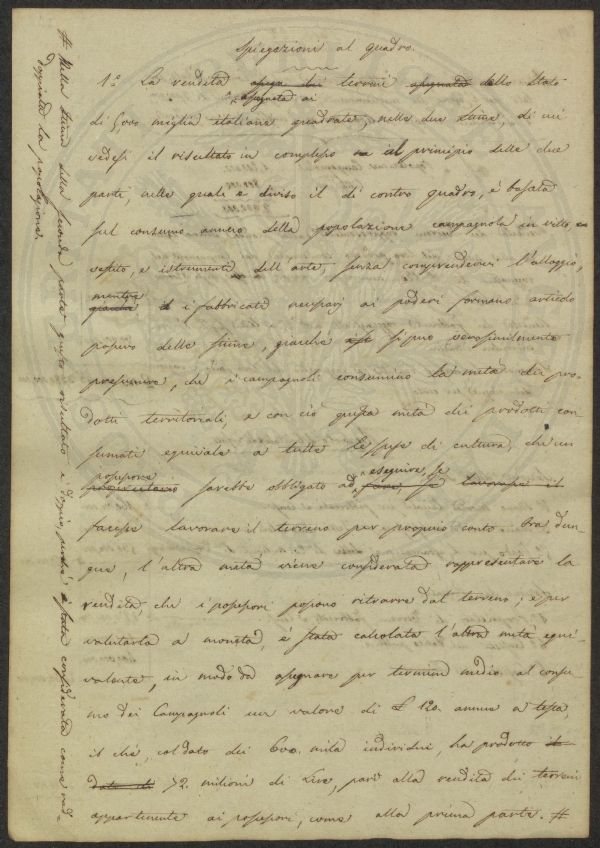 Spiegazioni al quadro.
1.° La rendita terreni dello Stato
assegnata ai
di 6000 miglia italiane quadrate, nelle due stime, di cui
vedesi il risultato in complesso al principio delle due
parti, nelle quali è diviso il di contro quadro, è basata
sul consumo annuo della popolazione campagnola in vitto,
vestito, e istrumenti dell'arte, senza comprendervi l'alloggio,
mentre
giacchè i fabbricati ai poderi formano articolo
passivo delle stime, giacchè si può verosimilmente
presumere, che i campagnoli consumino la metà dei pro-
dotti territoriali, e con ciò questa metà dei prodotti con
sumati equivale a tutte le spese di cultura, che un
possessore eseguire, se
proprietario sarebbe obbligato ad fare, se lavorasse il
facesse lavorare il terreno per proprio conto. Ora dun-
que, l'altra metà viene considerata rappresentare la
rendita, che i possessori possono ritrarre dal terreno; e per
valutarla a moneta, è stata calcolata l'altra metà equi-
valente, in modo da assegnare per termine medio al consu-
mo dei Campagnoli un valore di £ 120. annue a testa,
il chè, col dato dei 600. mila individui, ha prodotto
72. milioni di Lire, pari alla rendita dei terreni
appartenente ai possessori, come alla prima parte. #
# Nella stima della seconda parte questo risultato è doppio, perchè è stata considerata come rad-
doppiata la popolazione.